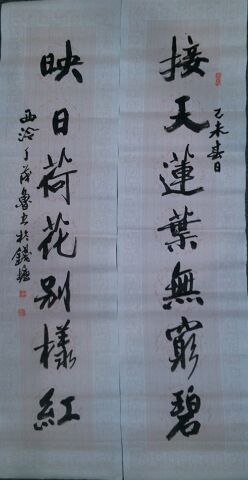 接天蓮葉無窮碧
乙未春日
映日荷花別樣紅
西泠丁茂魯書於錢塘